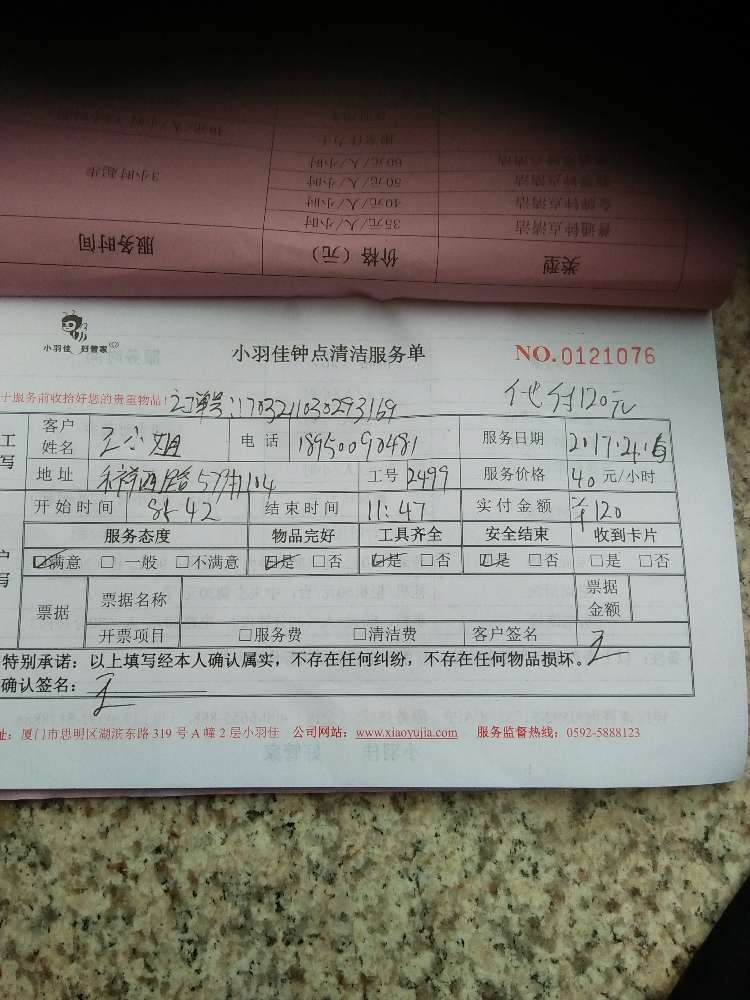 类型 价格（元） 服务时间
普通钟点清洁 35元/人/小时
金牌钟点清洁 40元/人/小时
50元/人/小时
60元/人/小时
3小时起步
小羽佳 好管家
小羽佳钟点清洁服务单
NO.0121076
服务前收拾好您的贵重物品!
订单号:1703211030293169
代付120元
客户姓名 王小姐 电话 18950090481 服务日期
地址 工号 2499 服务价格 40 元/小时
开始时间 8:42 结束时间 11:47 实付金额 ¥120
服务态度 物品完好 工具齐全 安全结束 收到卡片
☑满意 □一般 □不满意 ☑是 □否 ☑是 □否 ☑是 □否 □是 □否
票据 票据名称 票据金额
开票项目 □服务费 □清洁费 客户签名 王
特别承诺：以上填写经本人确认属实，不存在任何纠纷，不存在任何物品损坏。
确认签名：王
址：厦门市思明区湖滨东路 319 号 A 幢 2 层小羽佳 公司网站：www.xiaoyujia.com 服务监督热线：0592-5888123